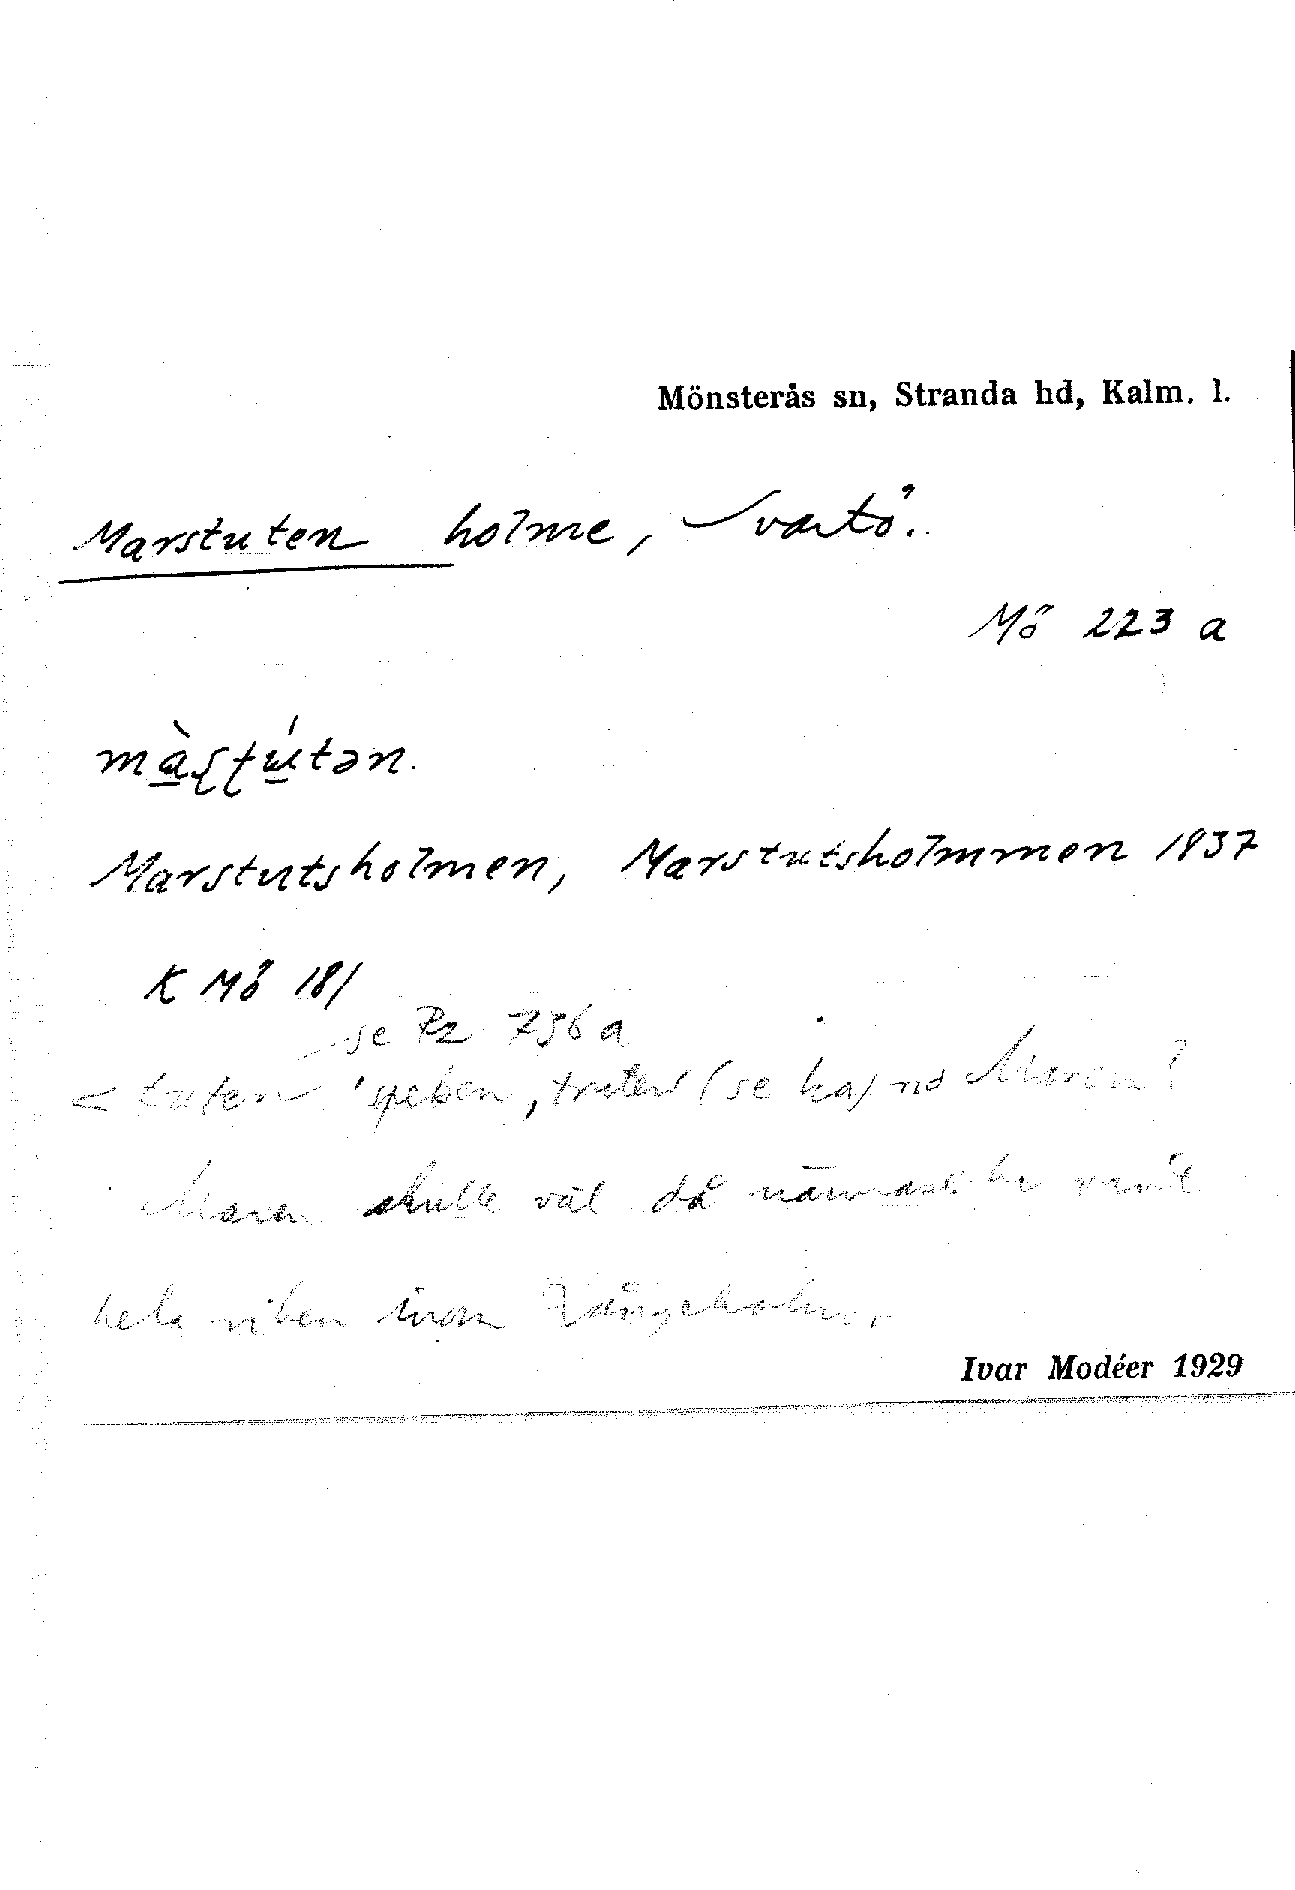 Mönsterås sn, Stranda hd, Kalm. l.
Marstuten holme, Svartö.
Mö 223 a
màʂʈútən.
Marstutsholmen, Marstutsholmmen 1937
K Mö 181
se Pz 756 a
< tuten 'pipen, truten' (se ka) no Maren?
Maren skulle väl då ha varit
hela viken inom Långeholm.
Ivar Modéer 1929